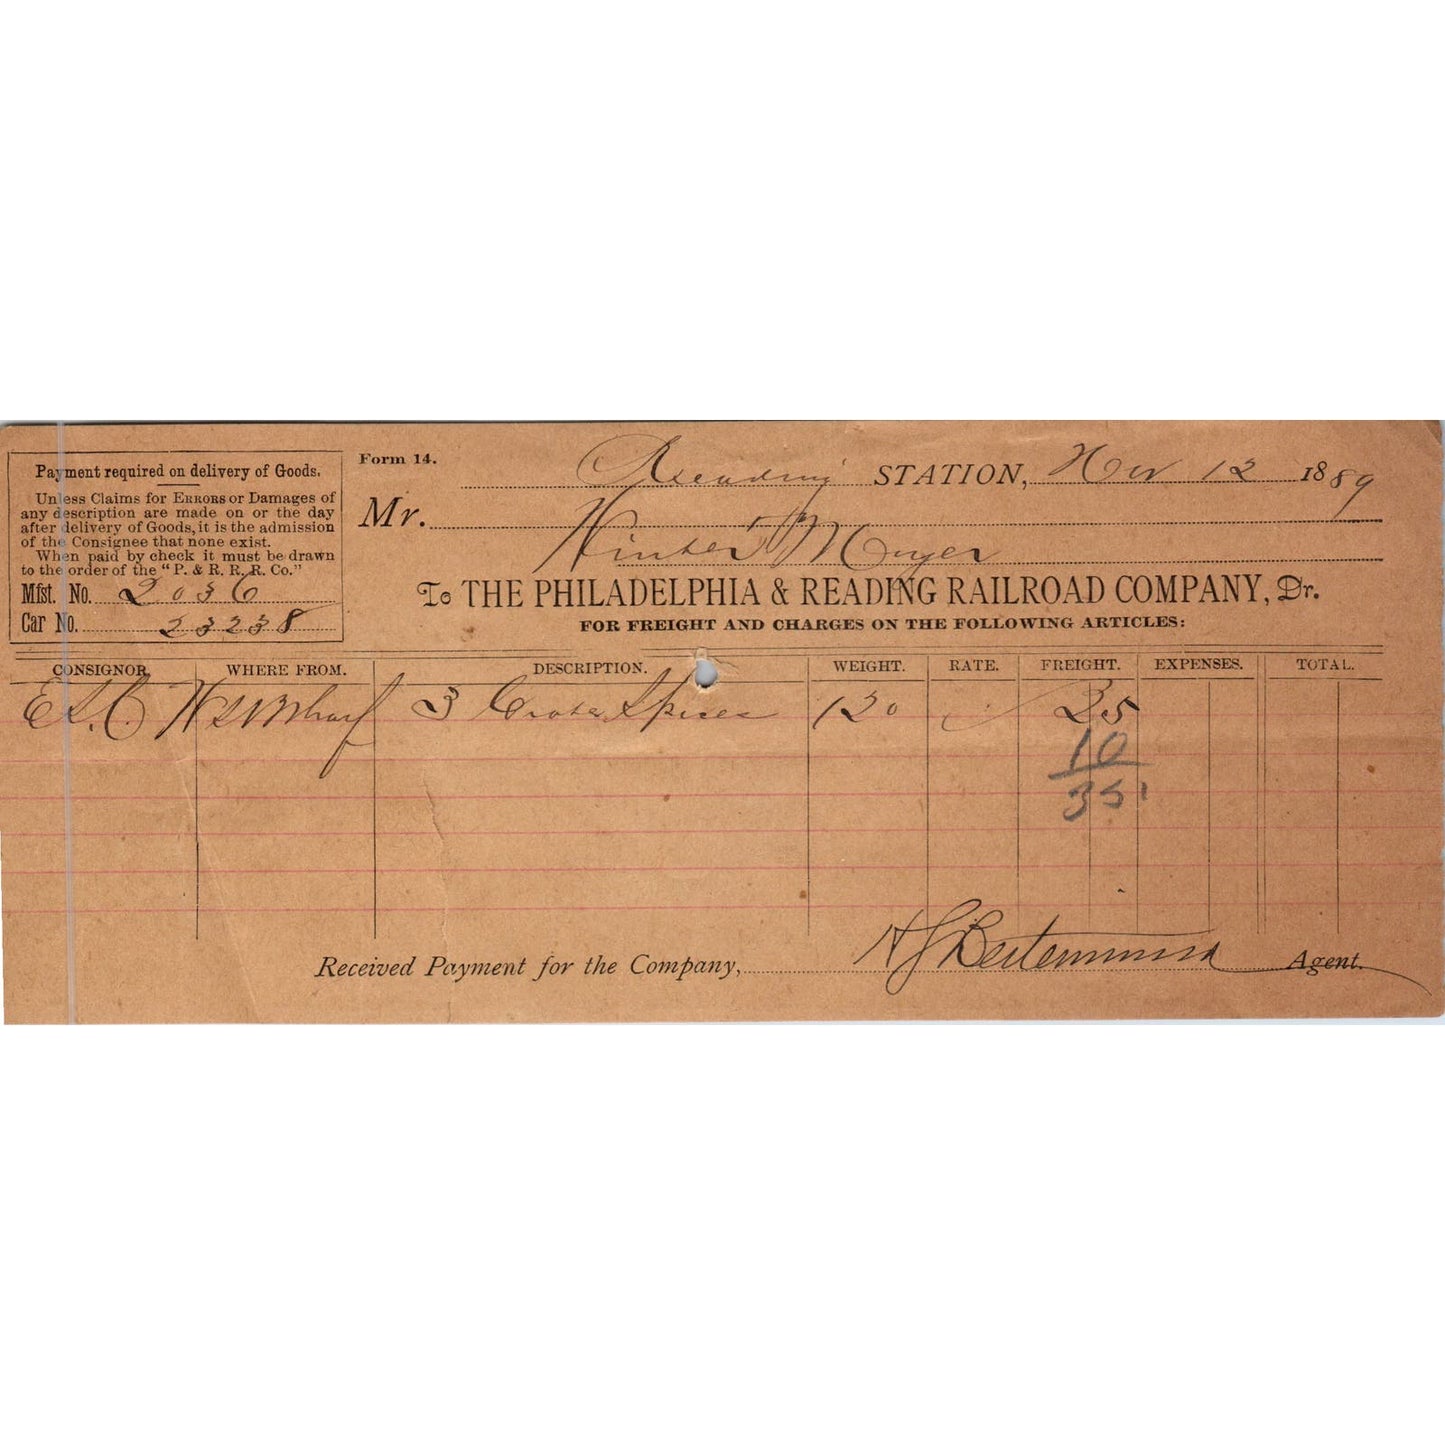 Form 14.
Reading STATION, Nov 12 1889
Mr.
Winter & Moyer
To THE PHILADELPHIA & READING RAILROAD COMPANY, Dr.
FOR FREIGHT AND CHARGES ON THE FOLLOWING ARTICLES:
Payment required on delivery of Goods.
Unless Claims for ERRORS or Damages of
any description are made on or the day
after delivery of Goods, it is the admission
of the Consignee that none exist.
When paid by check it must be drawn
to the order of the "P. & R. R. R. Co."
Mfst. No. 2036
Car No. 23238
CONSIGNOR. WHERE FROM. DESCRIPTION. WEIGHT. RATE. FREIGHT. EXPENSES. TOTAL.
Wharf 3 Spices 120 25
10
35
Received Payment for the Company, Agent.